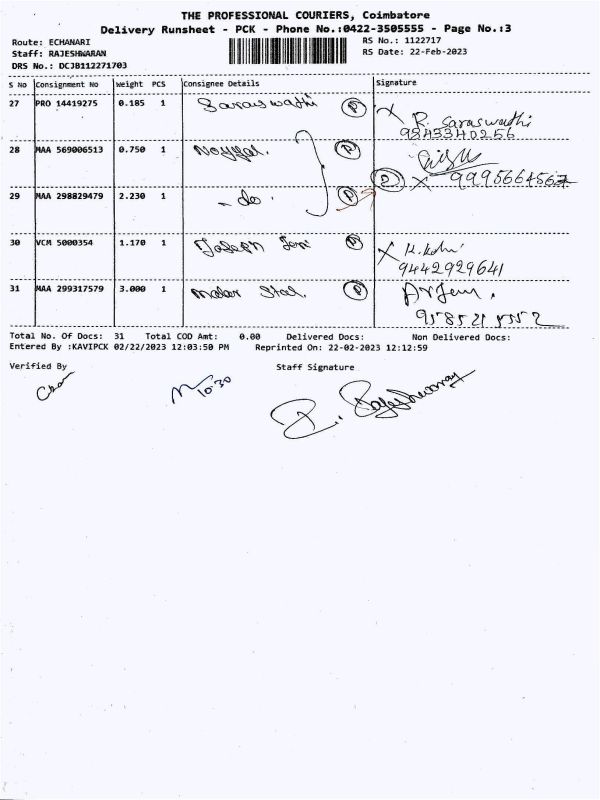 THE PROFESSIONAL COURIERS, Coimbatore
Delivery Runsheet - PCK - Phone No.:0422-3505555 - Page No.:3
Route: ECHANARI
Staff: RAJESHWARAN
DRS No.: DCJB112271703
RS No.: 1122717
RS Date: 22-Feb-2023
S No Consignment No Weight PCS Consignee Details Signature
27 PRO 14419275 0.185 1 Saraswathi P R. Saraswathi
9543340256
28 MAA 569006513 0.750 1 P
2 9995664567
29 MAA 298829479 2.230 1 - do. P
30 VCM 5000354 1.170 1 Joseph P
9442929641
31 MAA 299317579 3.000 1 Malar P
Total No. Of Docs: 31 Total COD Amt: 0.00 Delivered Docs: Non Delivered Docs:
Entered By :KAVIPCK 02/22/2023 12:03:50 PM Reprinted On: 22-02-2023 12:12:59
Verified By Staff Signature
10.30